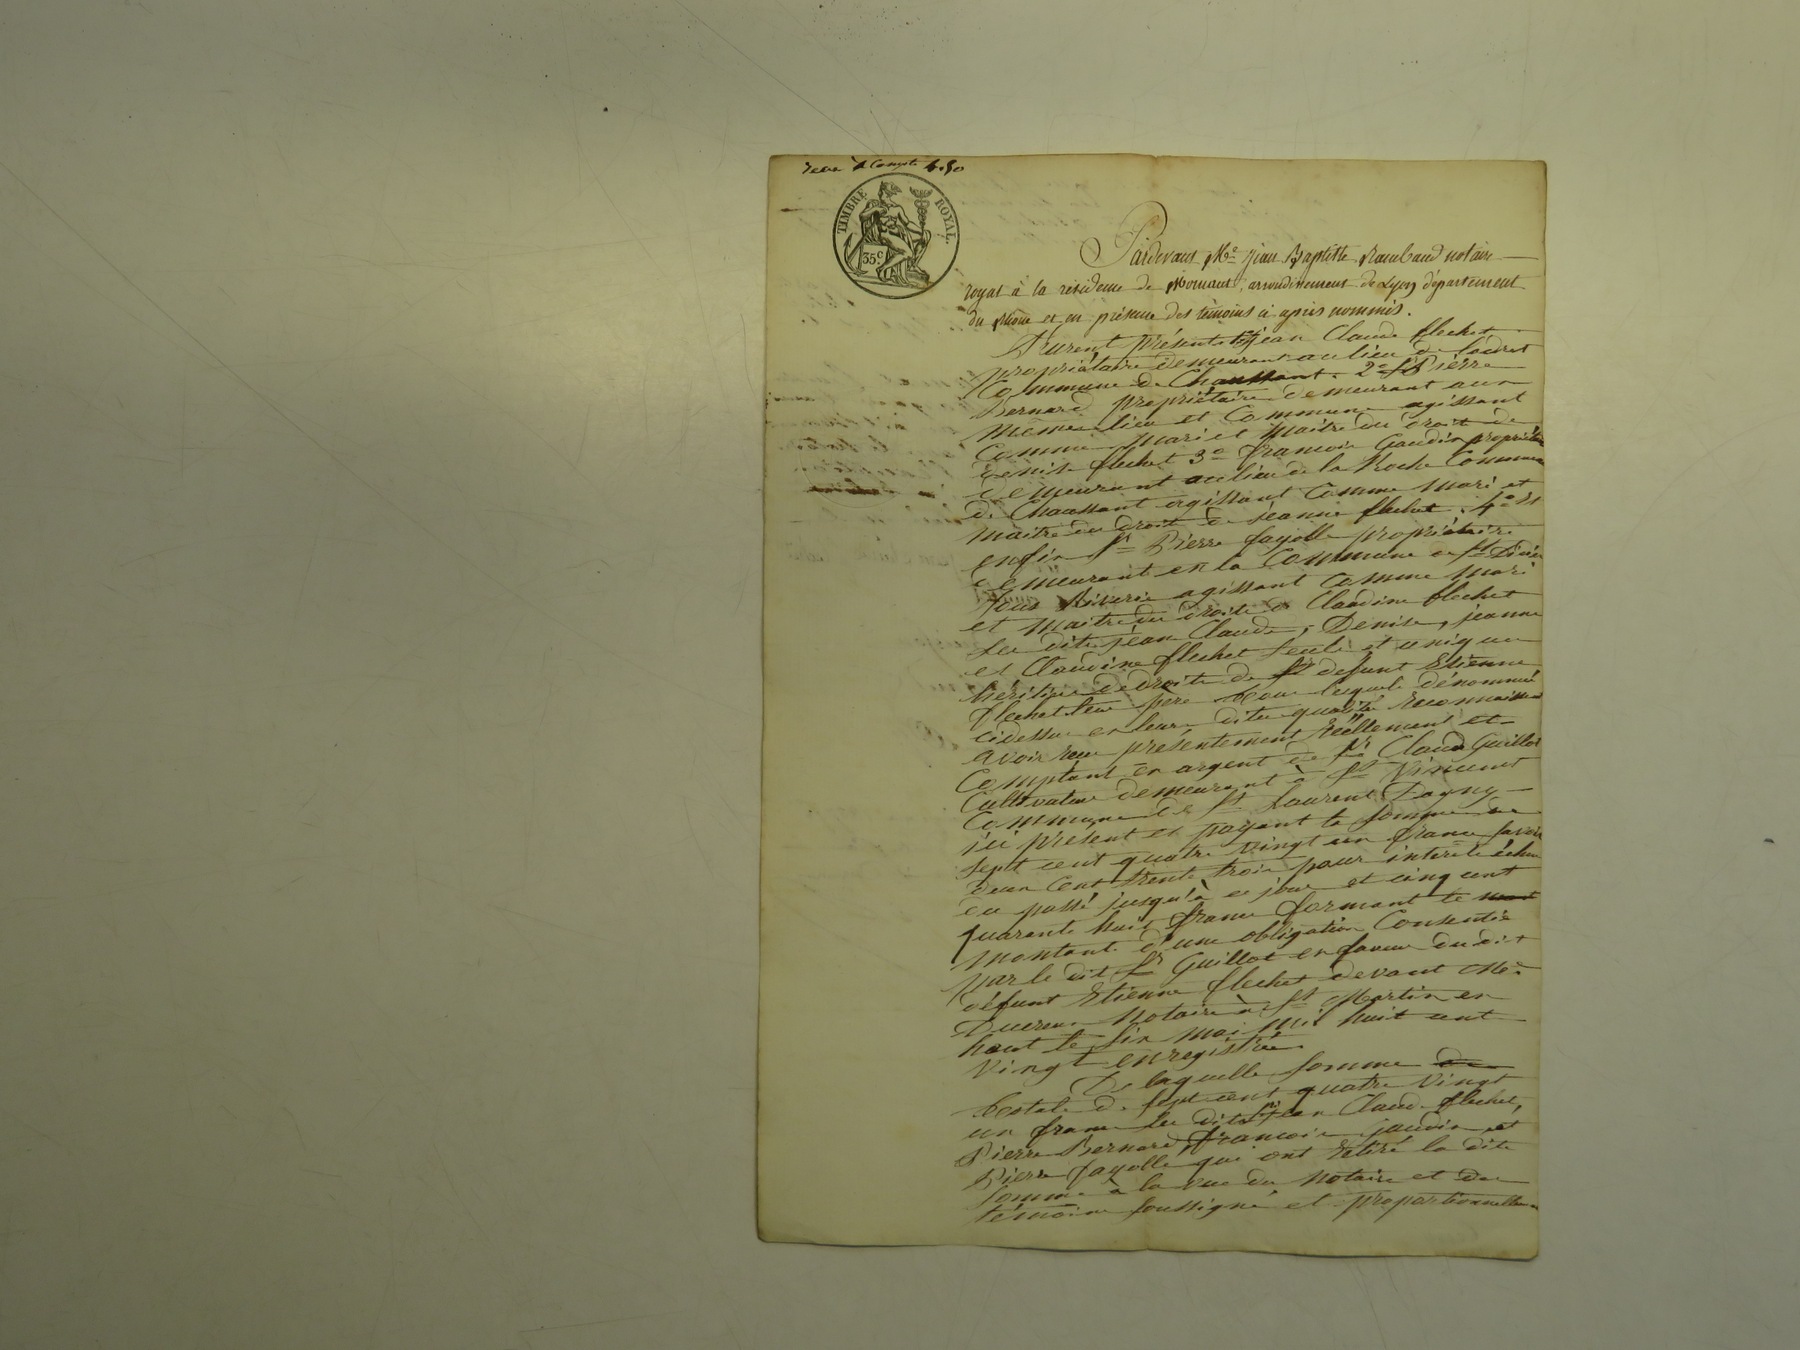 reçu à Compte 4.50
TIMBRE ROYAL
35 c.
Pardevant Me Jean Baptiste Raimbaud notaire
royal à la résidence de Mornant, arrondissement de Lyon département
du Rhône et en présence des témoins ci après nommés.
furent présents 1° jean Claude flechet
propriétaire demeurant au lieu de
Commune de Chaussant. 2° Sr Pierre
Bernard propriétaire demeurant aux
mêmes lieu et Commune agissant
Comme mari et maitre du droit de
denise flechet 3° francois Gaudin propriétaire
demeurant au lieu de la Roche Commune
de Chaussant agissant Comme mari et
maitre du droit de jeanne flechet. 4° et
enfin Sr Pierre fayolle propriétaire
demeurant en la Commune de St Didier
sous Riverie agissant Comme mari
et maitre du droit de Claudine flechet
les dits jean Claude, Denise, jeanne
et Claudine flechet seuls et uniques
héritiers de droit de défunt Etienne
flechet leur père tous lesquels dénommés
cidessus en leurs dites qualités reconnaissent
avoir reçu presentement réellement et
Comptant en argent de Sr Claude Guillot
Cultivateur demeurant à St Vincent
Commune de St Laurent Dagny
ici présent et payant la somme de
sept cent quatre vingt un francs savoir
deux Cent trente trois pour intérêts échus
du passé jusqu'à ce jour et cinq cent
quarante huit francs formant le
montant d'une obligation Consentie
par le dit Sr Guillot en faveur du dit
défunt Etienne flechet devant Me
Ducreux Notaire à St Martin en
haut le six mai mil huit cent
vingt enregistrée.
De laquelle somme
totale de sept cent quatre vingt
un francs les dits Srs jean Claude flechet,
Pierre Bernard, francois jaudin et
Pierre fayolle qui ont retiré la dite
somme à la vue du Notaire et des
témoins soussignés et proportionnellem